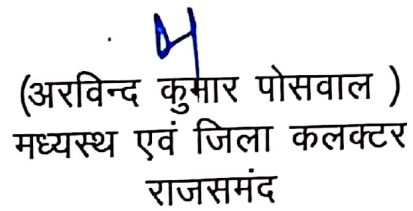 (अरविन्द कुमार पोसवाल )
मध्यस्थ एवं जिला कलक्टर
राजसमंद